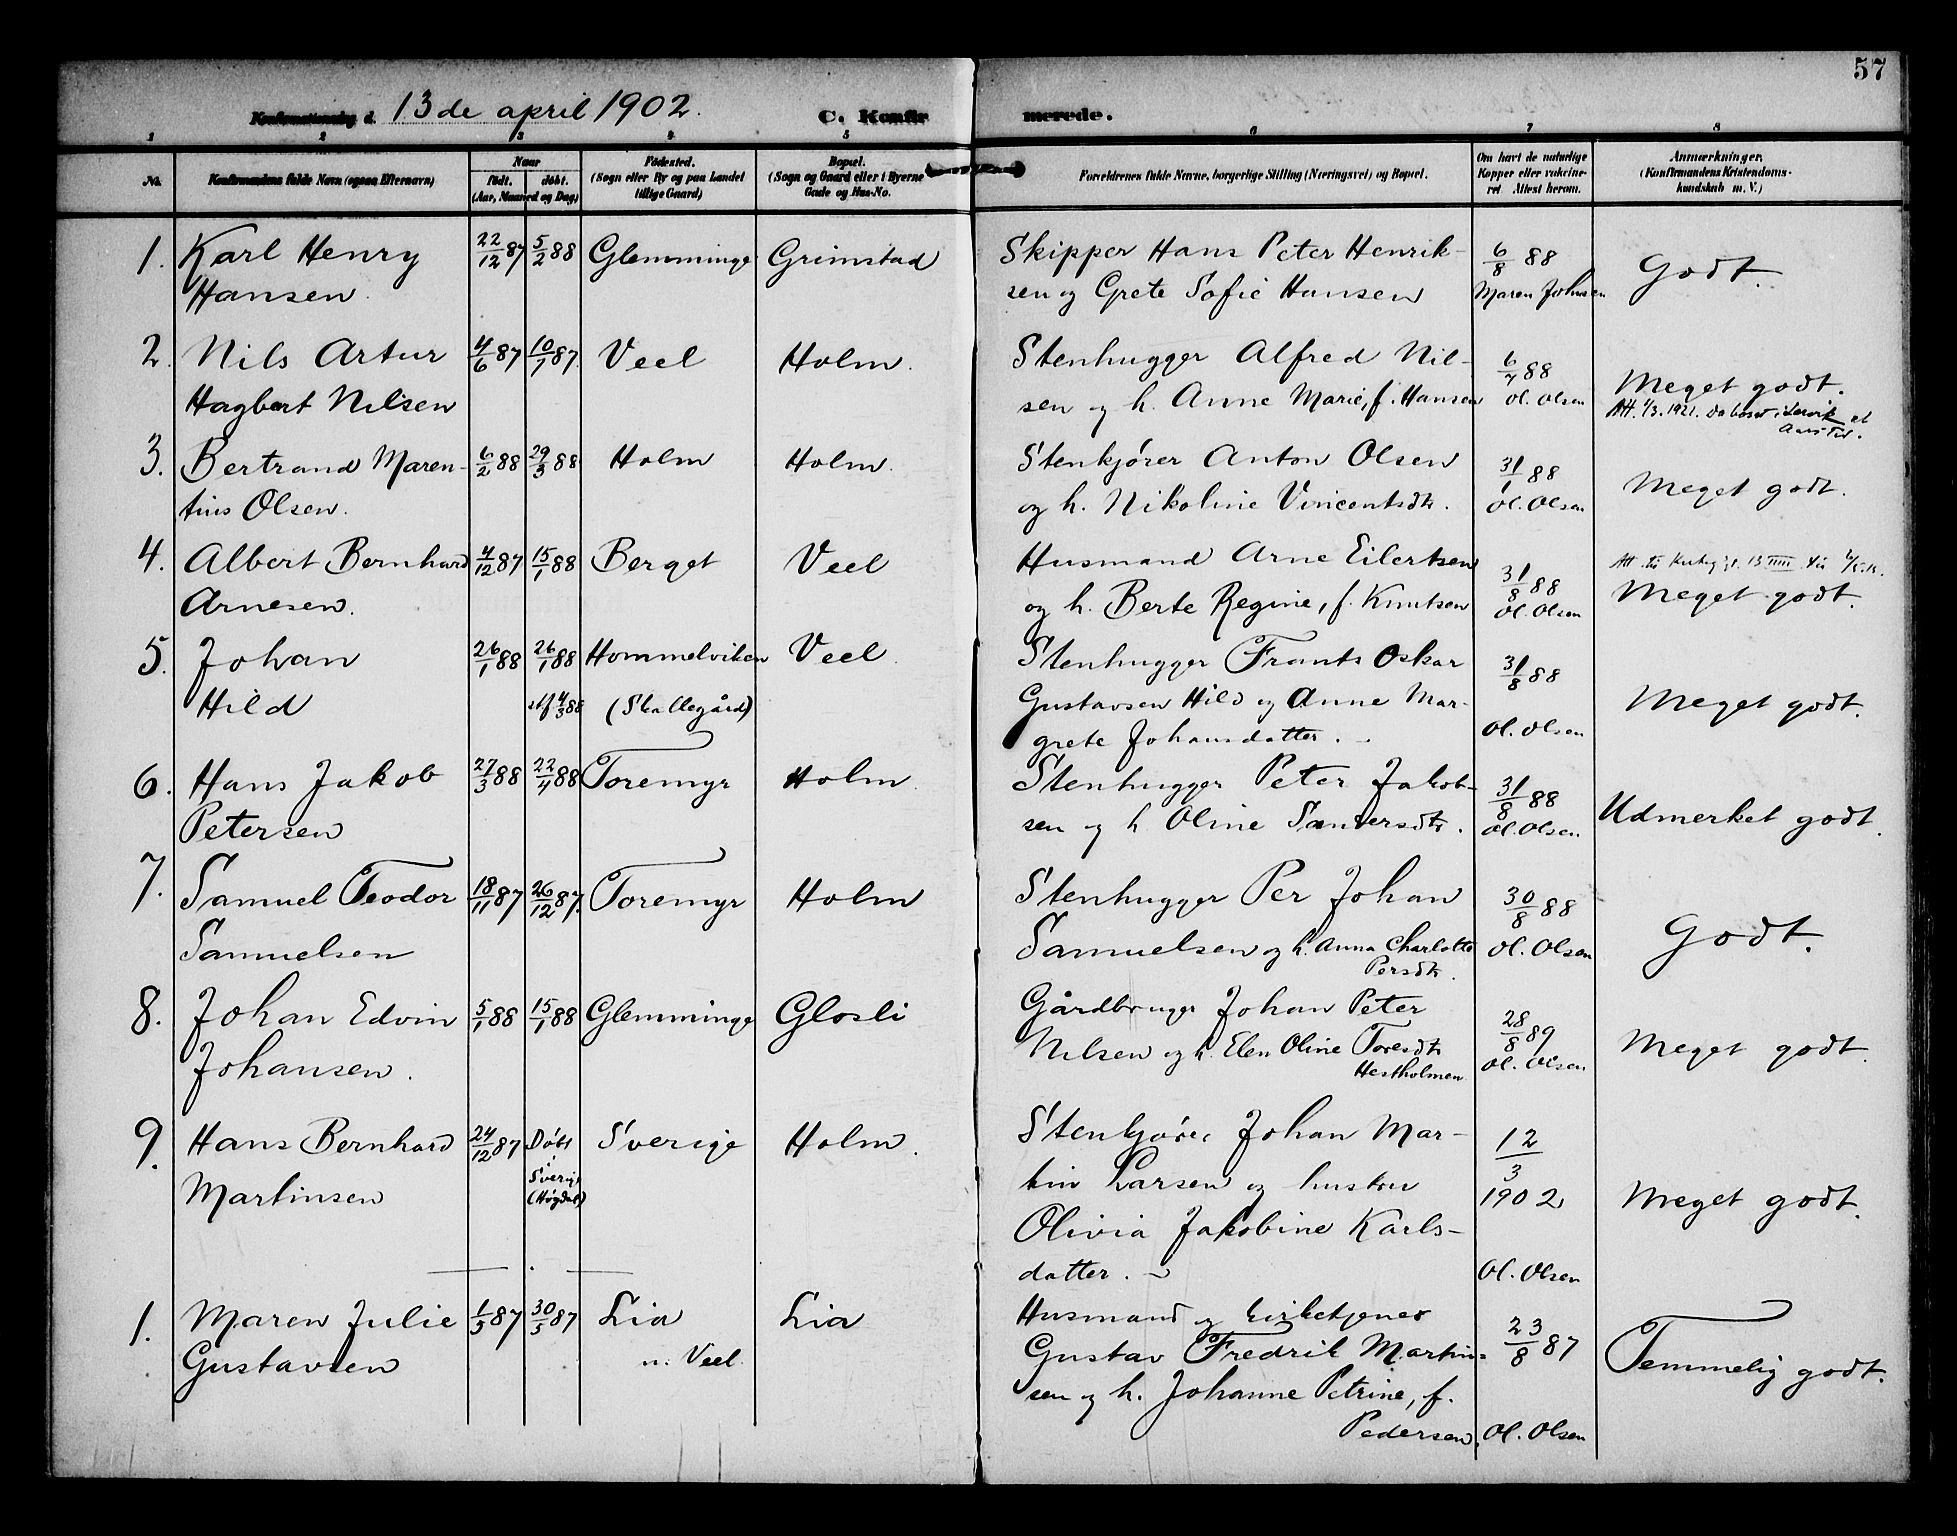 57
Konfirmationsdag d. 13de april 1902.
C. Konfirmerede.
1 2 3 4 5 6 7 8
No.
Konfirmandens fulde Navn (ogsaa Efternavn)
Naar
født. døbt.
(Aar, Maaned og Dag)
Fødested.
(Sogn eller By og paa Landet
tillige Gaard)
Bopæl.
(Sogn og Gaard eller i Byerne
Gade og Hus-No.
Forældrenes fulde Navne, borgerlige Stilling (Næringsvei) og Bopæl.
Om havt de naturlige
Kopper eller vakcine-
ret. Attest herom.
Anmærkninger.
(Konfirmandens Kristendoms-
kundskab m. V.)
1. Karl Henry 22/12 87 5/2 88 Glemminge Grimstad Skipper Hans Peter Henrik- 6/8 88 Godt.
Hansen. sen og Grete Sofie Hansen Maren Johnsen
2. Nils Artur 4/6 87 10/7 87. Veel Holm. Stenhugger Alfred Nil- 6/7 88 Meget godt.
Hagbart Nilsen sen og h. Anne Marie, f. Hansen Ol. Olsen
Att. 1/3. 1921.
3. Bertrand Maren- 6/2 88 29/3 88 Holm Holm. Stenkjører Anton Olsen 31/8 88 Meget godt.
tius Olsen. og h. Nikoline Vincentsdtr. Ol. Olsen
4. Albert Bernhard 4/12 87 15/1 88 Berget Veel Husmand Arne Eilertsen 31/8 88
Arnesen. og h. Berte Regine, f. Knutsen Ol. Olsen Meget godt.
5. Johan 26/1 88 26/1 88 Hommelviken Veel. Stenhugger Frants Oskar 31/8 88
Hild 4/3 88 (Skallegård) Gustavsen Hild og Anne Mar- Meget godt.
grete Johansdatter. Ol. Olsen
6. Hans Jakob 27/3 88 22/4 88 Toremyr Holm. Stenhugger Peter Jakob- 31/8 88 Udmerket godt.
Petersen sen og h Oline Sandersdtr. Ol. Olsen
7. Samuel Teodor 18/11 87 26/12 87. Toremyr Holm Stenhugger Per Johan 30/8 88 Godt.
Samuelsen Samuelsen og h. Anna Charlotte Ol. Olsen
Persdtr.
8. Johan Edvin 5/1 88 15/1 88 Glemminge Glosli Gårdbruger Johan Peter 28/8 89
Johansen. Nilsen og h. Elen Oline Toresdtr Ol. Olsen Meget godt.
Hestholmen
9. Hans Bernhard 24/12 87 Døbt Sverige Holm. Stenkjører Johan Mar- 12/3
Martinsen i Sverige tin Larsen og hustru 1902 Meget godt.
(Høgdal) Olivia Jakobine Karls-
datter. Ol. Olsen
1. Maren Julie 1/5 87 30/5 87 Lia Lia Husmand og kirketjener 23/8 87
Gustavsen u. Veel. Gustav Fredrik Martin- Temmelig godt.
sen og h. Johanne Petrine, f.
Pedersen. Ol. Olsen